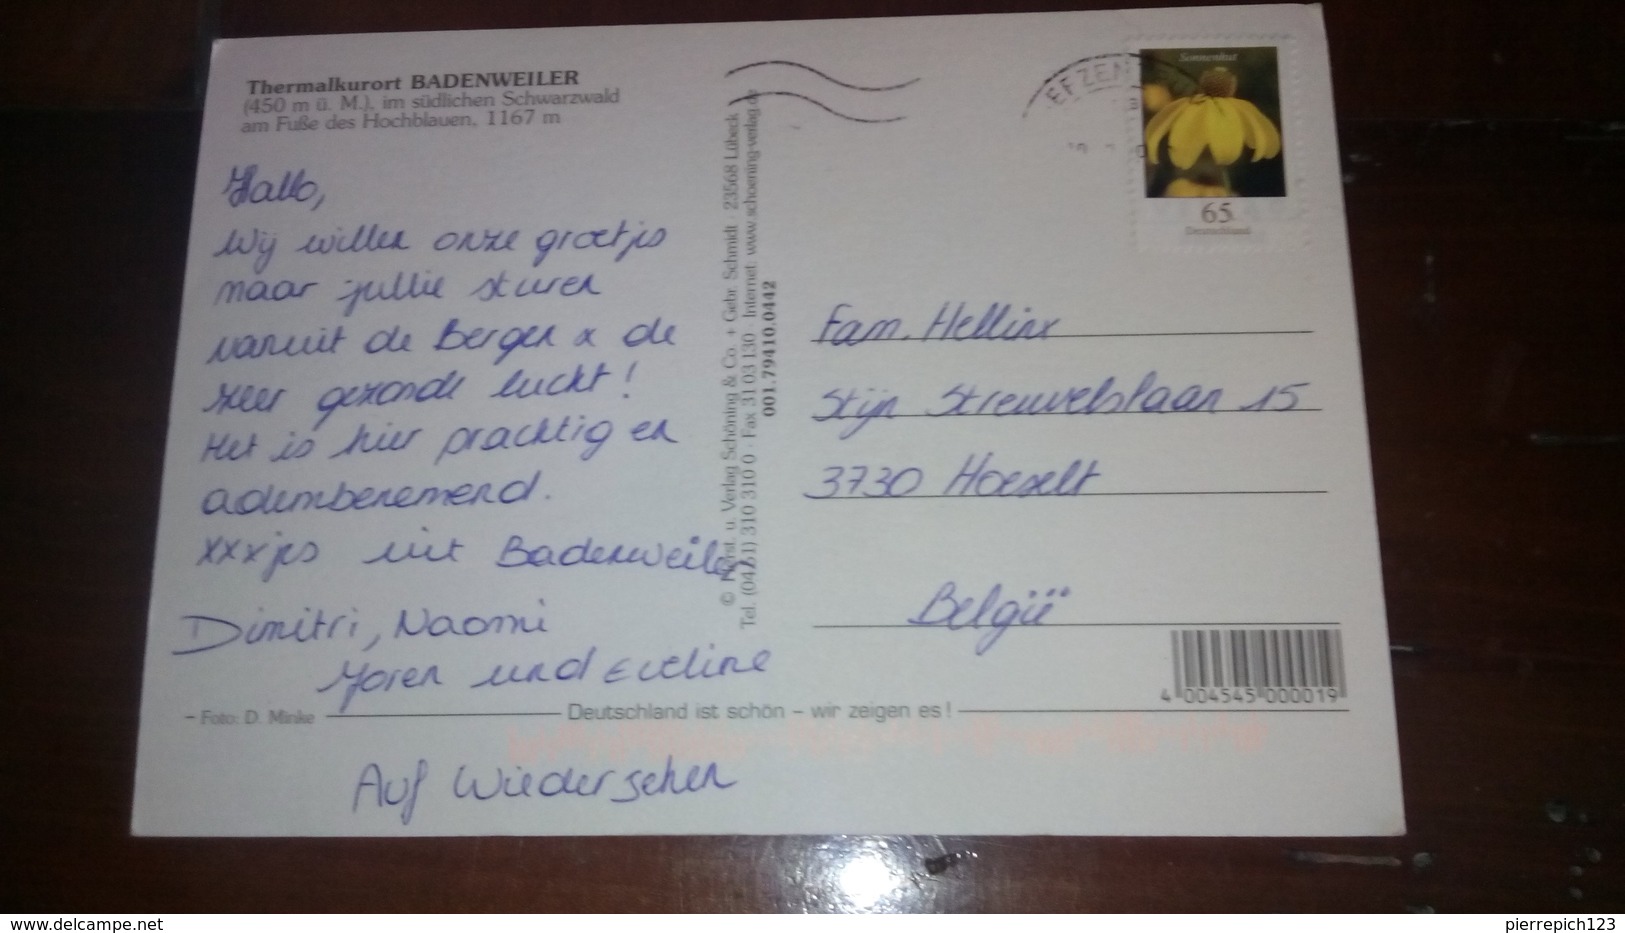 Thermalkurort BADENWEILER
(450 m ü. M.), im südlichen Schwarzwald
am Fuße des Hochblauen, 1167 m
Hallo,
Wij willen onze groetjes
naar jullie sturen
vanuit de Bergen & de
zeer gezonde lucht!
Het is hier prachtig en
adembenemend.
xxxjes uit Badenweiler
Dimitri, Naomi
Joren und Eveline
– Foto: D. Minke
Deutschland ist schön – wir zeigen es!
Auf Wiedersehen
u. Verlag Schöning & Co. + Gebr. Schmidt · 23568 Lübeck
Tel. (0451) 310 310 0 · Fax 31 03 130 · Internet: www.schoening-verlag.de
001.79410.0442
EFZEN
Sonnenhut
65
Deutschland
Fam. Hellinx
Stijn Streuvelslaan 15
3730 Hoeselt
België
4 004545 000019
delcampe.net
pierrepich123